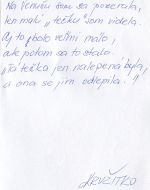 Na Venušu som sa pozerala,
len malú „tečku" som videla.
Aj to bolo veľmi málo,
ale potom sa to stalo.
„Tá tečka jen nalepená byla,
a ona se jim odlepila."!